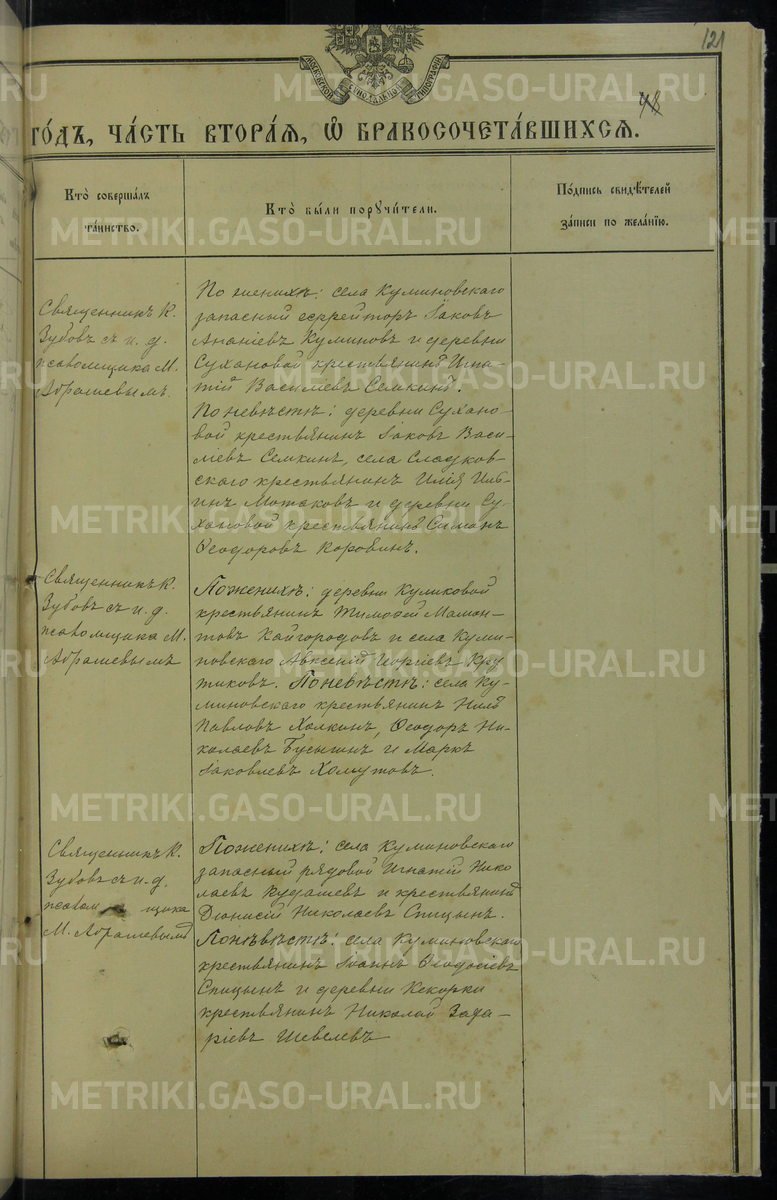 121
МОСКОВСКОЙ СѴНОДАЛЬНОЙ ТИПОГРАФІИ
48
ГО́ДЪ, ЧА́СТЬ ВТОРА́Я, Ѽ БРАКОСОЧЕТА́ВШИХСЯ.
Кто̀ совершалъ
та́инство.
Кто̀ бы́ли поручи́тели.
По́дпись свидѣ́телей
за́писи по жела́нїю.
Священникъ К.
Зубовъ съ и. д.
псаломщика М.
Абрашевымъ.
По женихѣ: села Куминовскаго
запасный ефрейторъ Іаковъ
Ананіевъ Куминовъ и деревни
Сухановой крестьянинъ Игна-
тій Василіевъ Семкинъ.
По невѣстѣ: деревни Сухано-
вой крестьянинъ Іаковъ Васи-
ліевъ Семкинъ, села Сладков-
скаго крестьянинъ Илія Иль-
инъ и деревни Су-
хановой крестьянинъ Симонъ
Ѳеодоровъ Коровинъ.
Священникъ К.
Зубовъ съ и. д.
псаломщика М.
Абрашевымъ
По женихѣ: деревни Куликовой
крестьянинъ Тимоѳей Мамон-
товъ Кайгородовъ и села Куми-
новскаго Авксений Георгіевъ Кру-
тиковъ. По невѣстѣ: села Ку-
миновскаго крестьянинъ Нилъ
Павловъ Халкинъ, Ѳеодоръ Ни-
колаевъ Бусыгинъ и Маркъ
Іаковлевъ Хомутовъ.
Священникъ К.
Зубовъ съ и. д.
псалом щика
М. Абрашевымъ
По женихѣ: села Куминовскаго
запасный рядовой Игнатій Нико
лаевъ Кудашевъ и крестьянинъ
Діонисій Николаевъ Спицынъ.
По нѣвѣстѣ: села Куминовскаго
крестьянинъ Іоаннъ Ѳеодосіевъ
Спицынъ и деревни Кекорки
крестьянинъ Николай Заха-
ріевъ Шевелевъ
METRIKI.GASO-URAL.RU